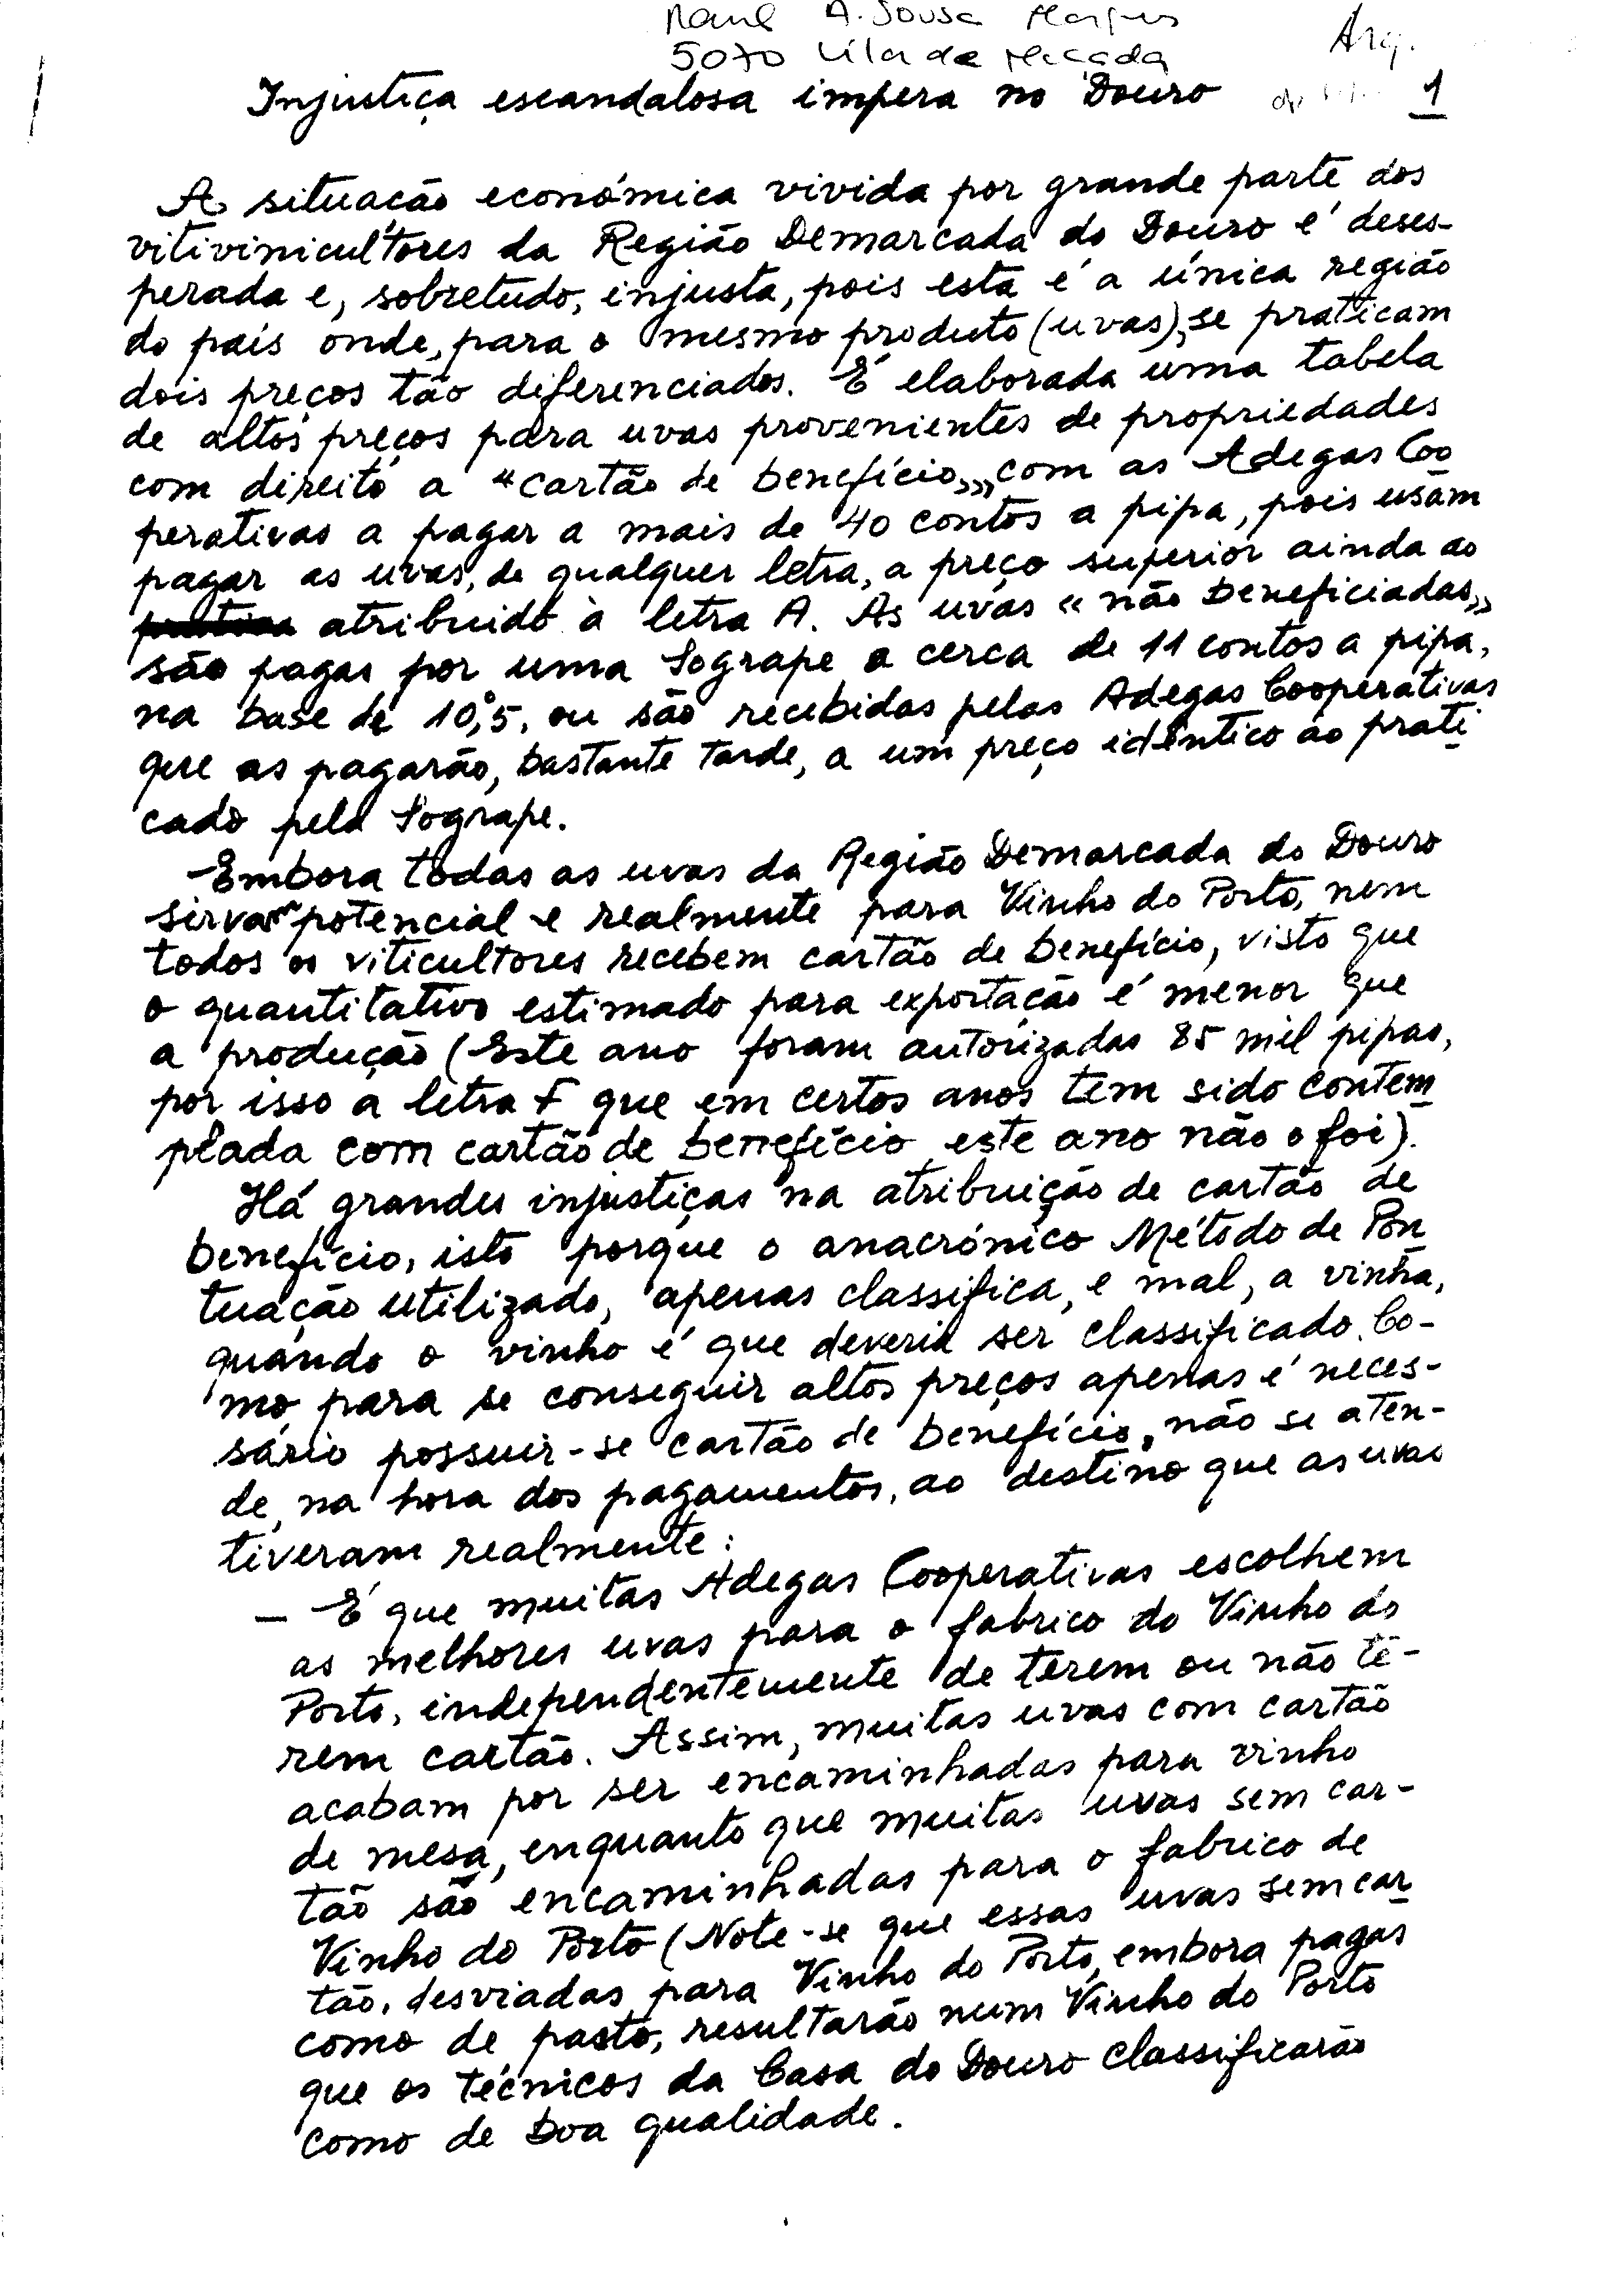 A. Sousa
5070 Vila de
Arq.
Injustiça escandalosa impera no Douro
1
A situação económica vivida por grande parte dos
vitivinicultores da Região Demarcada do Douro é deses-
perada e, sobretudo, injusta, pois esta é a única região
do país onde, para o mesmo produto (uvas), se praticam
dois preços tão diferenciados. É elaborada uma tabela
de altos preços para uvas provenientes de propriedades
com direito a "cartão de benefício,,, com as Adegas Coo
perativas a pagar a mais de 40 contos a pipa, pois usam
pagar as uvas, de qualquer letra, a preço superior ainda ao
atribuído à letra A. As uvas « não beneficiadas,,
são pagas por uma Sogrape a cerca de 11 contos a pipa,
na base de 10°,5, ou são recebidas pelas Adegas Cooperativas
que as pagarão, bastante tarde, a um preço idêntico ao prati
cado pela Sogrape.
Embora todas as uvas da Região Demarcada do Douro
sirvam potencial e realmente para Vinho do Porto, nem
todos os viticultores recebem cartão de benefício, visto que
o quantitativo estimado para exportação é menor que
a produção (Este ano foram autorizadas 85 mil pipas,
por isso a letra F que em certos anos tem sido contem
plada com cartão de benefício este ano não o foi).
Há grandes injustiças na atribuição de cartão de
benefício, isto porque o anacrónico Método de Pon
tuação utilizado, apenas classifica, e mal, a vinha,
quando o vinho é que deveria ser classificado. Co-
mo para se conseguir altos preços apenas é neces-
sário possuir-se cartão de benefício, não se aten-
de, na hora dos pagamentos, ao destino que as uvas
tiveram realmente:
— É que muitas Adegas Cooperativas escolhem
as melhores uvas para o fabrico do Vinho do
Porto, independentemente de terem ou não te-
rem cartão. Assim, muitas uvas com cartão
acabam por ser encaminhadas para vinho
de mesa, enquanto que muitas uvas sem car-
tão são encaminhadas para o fabrico de
Vinho do Porto (Note-se que essas uvas sem car
tão, desviadas para Vinho do Porto, embora pagas
como de pasto, resultarão num Vinho do Porto
que os técnicos da Casa do Douro classificarão
como de boa qualidade.